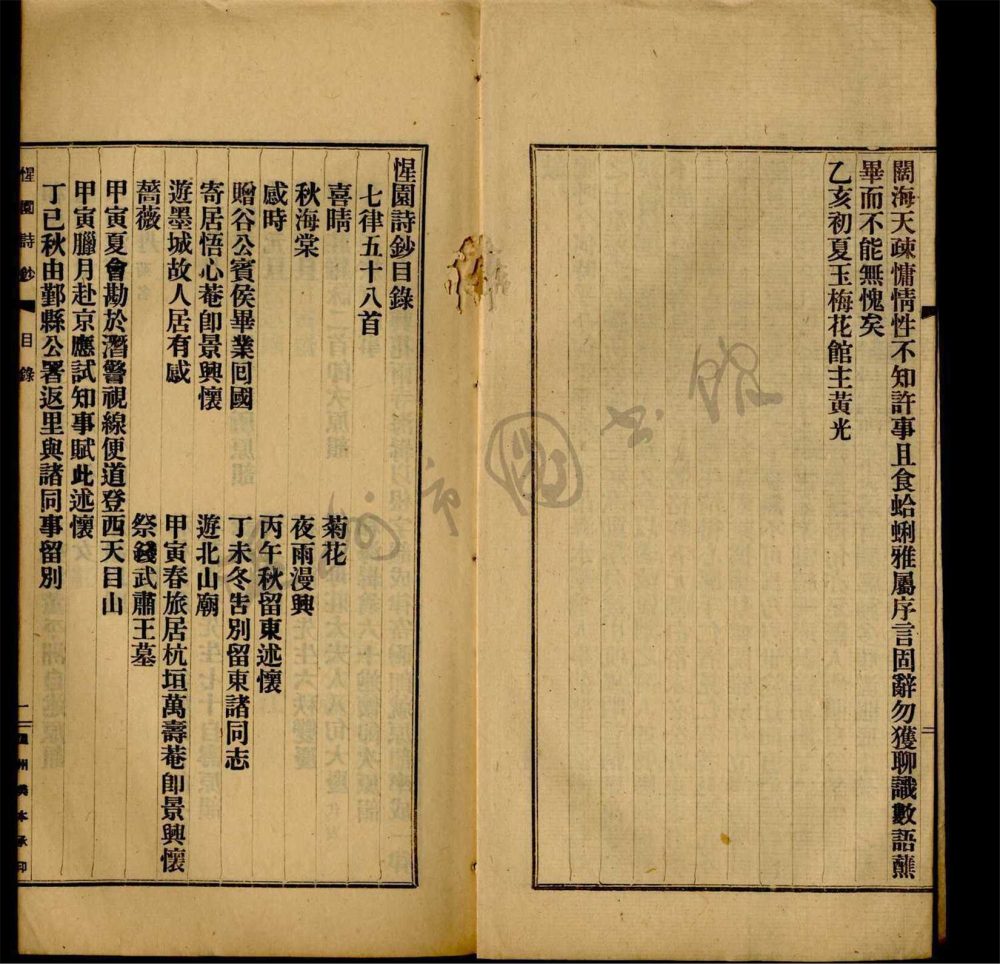 闊海天疎慵情性不知許事且食蛤蜊雅屬序言固辭勿獲聊識數語蘸
畢而不能無愧矣
乙亥初夏玉梅花館主黃光
惺園詩鈔目錄
七律五十八首
喜晴
菊花
秋海棠
夜雨漫興
感時
丙午秋留東述懷
贈谷公賓侯畢業回國
丁未冬吿別留東諸同志
寄居悟心菴卽景興懷
遊北山廟
遊墨城故人居有感
甲寅春旅居杭垣萬壽菴卽景興懷
薔薇
祭錢武肅王墓
甲寅夏會勘於潛警視線便道登西天目山
甲寅臘月赴京應試知事賦此述懷
丁巳秋由鄞縣公署返里與諸同事留別
惺園詩鈔
目錄
一
州
本承印
二
市圖書館